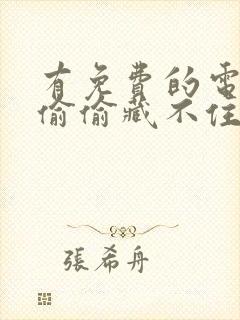 有免費的電
偷偷藏不住
張希舟